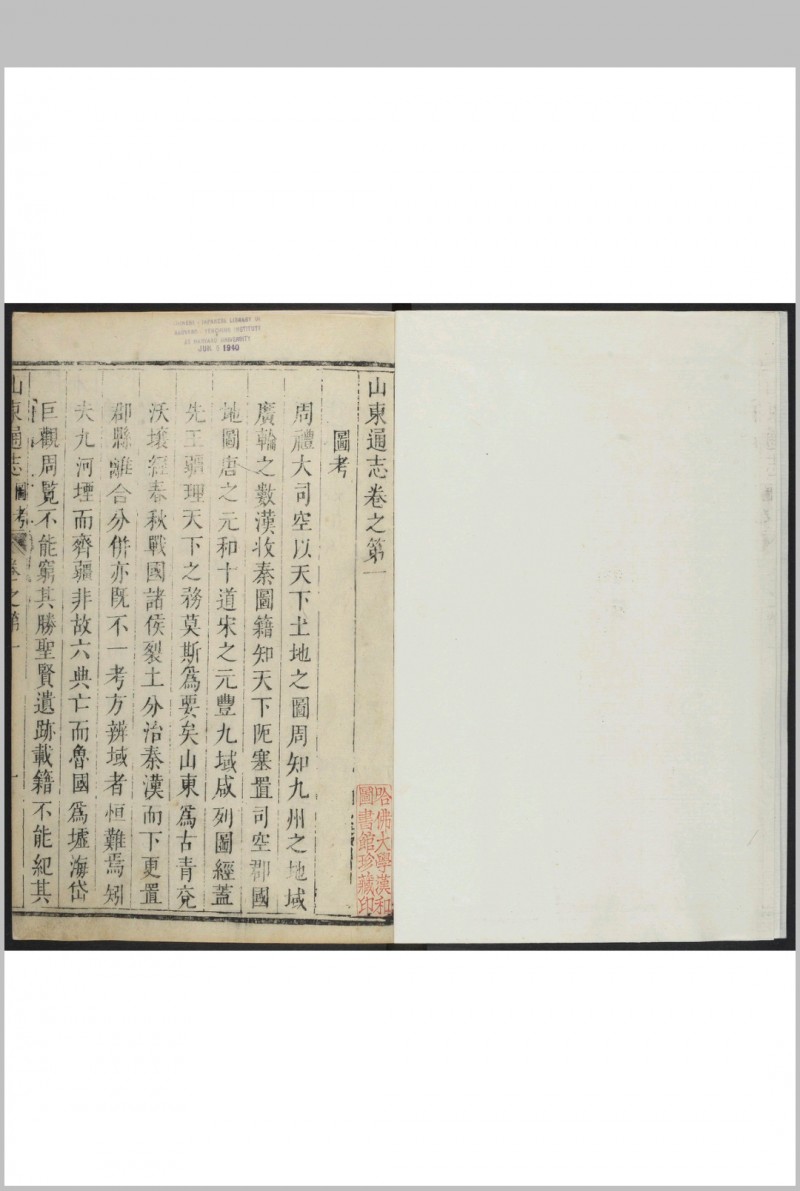 山東通志卷之第一
圖考
周禮大司空以天下土地之圖周知九州之地域
廣輪之數漢收秦圖籍知天下阨塞置司空郡國
地圖唐之元和十道宋之元豐九域咸列圖經蓋
先王疆理天下之務莫斯爲要矣山東爲古青兗
沃壤經春秋戰國諸侯裂土分治秦漢而下更置
郡縣離合分併亦既不一考方辨域者恒難焉矧
夫九河堙而齊疆非故六典亡而魯國爲墟海岱
巨觀周覽不能窮其勝聖賢遺跡載籍不能紀其
山東通志 圖考 卷之第一 一
哈佛大學漢和
圖書館珍藏印
LIBRARY OF
INSTITUTE
AT HARVARD UNIVERSITY
JUN 1940